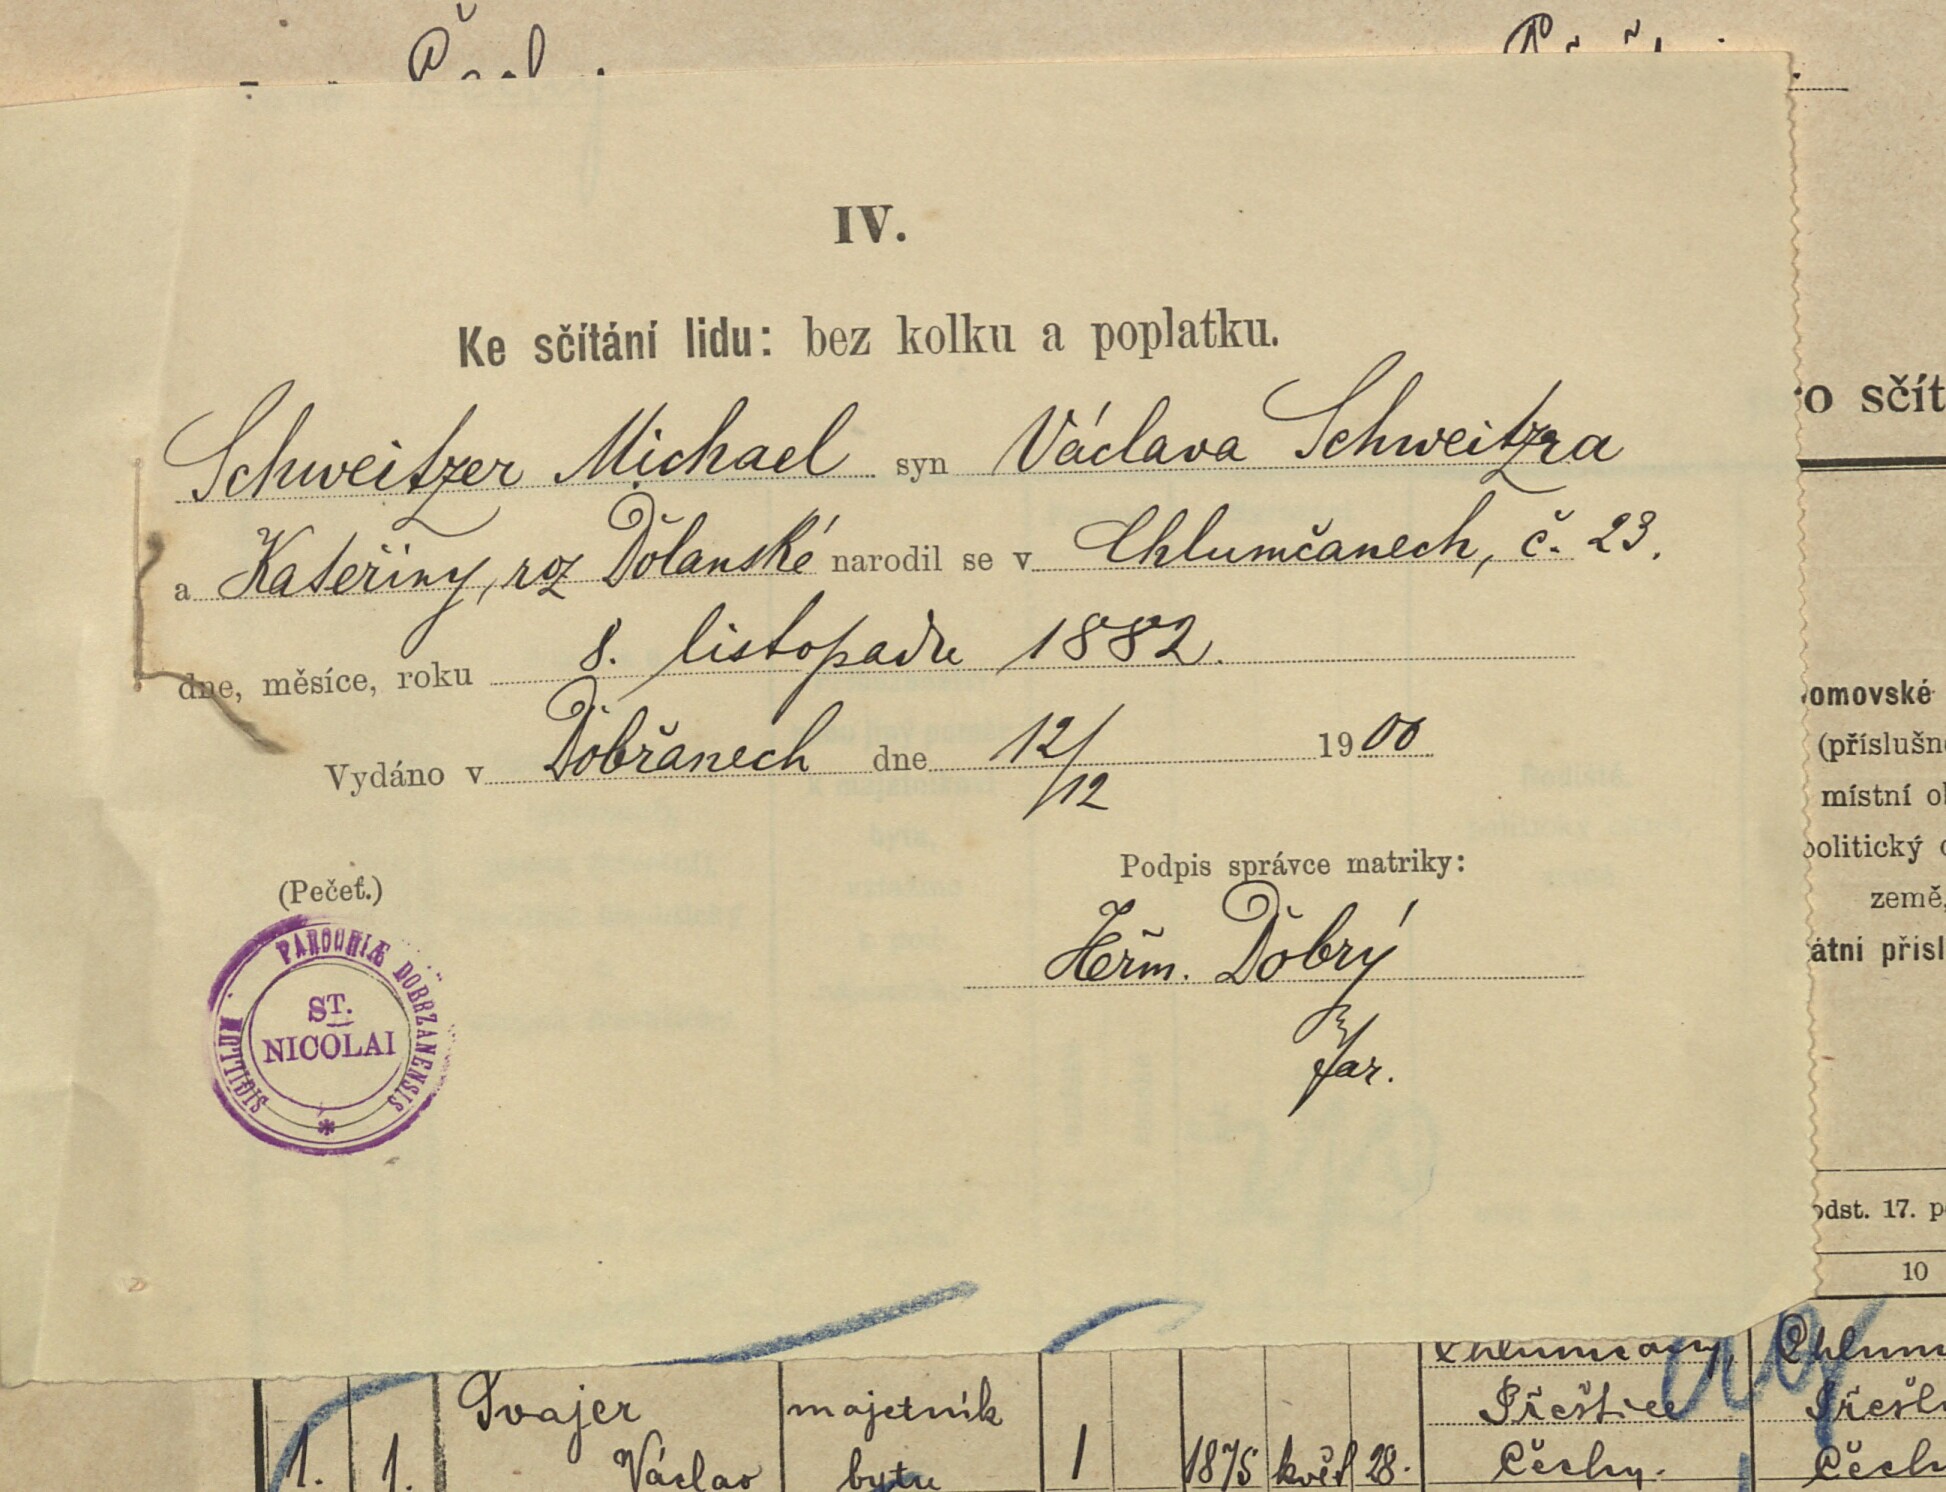 IV.
Ke sčítání lidu: bez kolku a poplatku.
Schweitzer Michael syn Václava Schweitzra
a Kateřiny, roz Dolanské narodil se v Chlumčanech, č. 23.
dne, měsíce, roku 8. listopadu 1882.
Vydáno v Dobřanech dne 12/12 1900
Podpis správce matriky:
(Pečeť.)
Heřm. Dobrý
far.
SIGILLUM PAROCHIÆ DOBRZANENSIS
ST.
NICOLAI
ro sčít
omovské
(příslušn
místní ob
politický o
země,
átní přísl
odst. 17. p
10
Chlumčany, Chlum
Švajer majetník Přeštice Přešt
1. 1. Václav bytu 1 1875 květ 28. Čechy. Čech